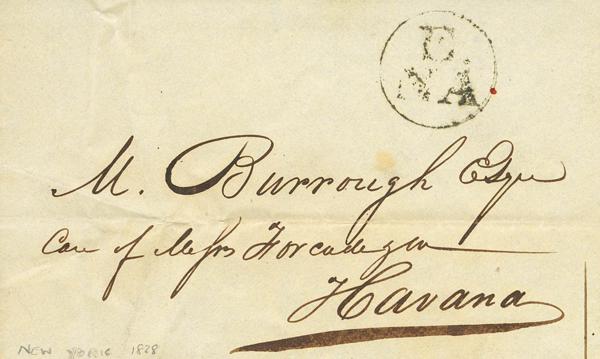 E.
NA
M. Burrough Esqre
Care of Messrs Forcade & Co
Havana
NEW YORK 1828